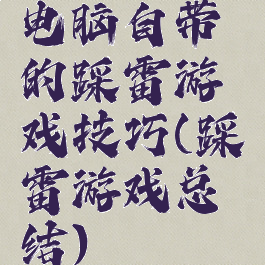 电脑自带
的踩雷游
戏技巧(踩
雷游戏总
结)